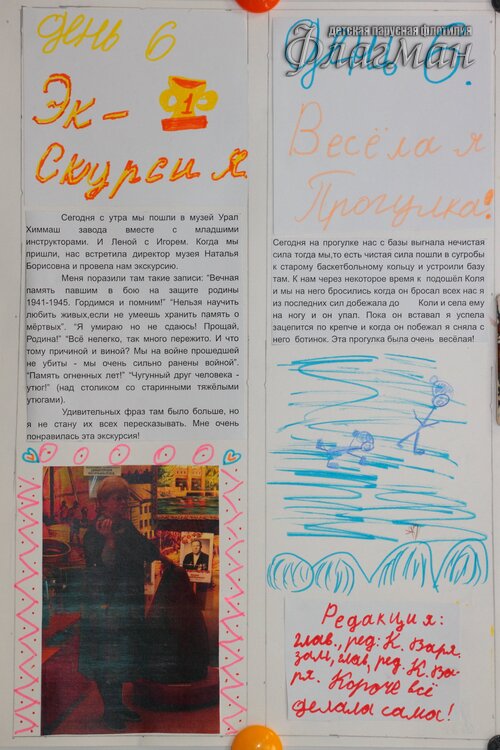 День 6
Эк-
1
скурсия
Сегодня с утра мы пошли в музей Урал
Химмаш завода вместе с младшими
инструкторами. И Леной с Игорем. Когда мы
пришли, нас встретила директор музея Наталья
Борисовна и провела нам экскурсию.
Меня поразили там такие записи: "Вечная
память павшим в бою на защите родины
1941-1945. Гордимся и помним!" "Нельзя научить
любить живых,если не умеешь хранить память о
мёртвых". "Я умираю но не сдаюсь! Прощай,
Родина!" "Всё нелегко, так много пережито. И что
тому причиной и виной? Мы на войне прошедшей
не убиты - мы очень сильно ранены войной".
"Память огненных лет!" "Чугунный друг человека -
утюг!" (над столиком со старинными тяжёлыми
утюгами).
Удивительных фраз там было больше, но
я не стану их всех пересказывать. Мне очень
понравилась эта экскурсия!
детская парусная флотилия
Флагман
День 6.
Весёлая
Прогулка!
Сегодня на прогулке нас с базы выгнала нечистая
сила тогда мы,то есть чистая сила пошли в сугробы
к старому баскетбольному кольцу и устроили базу
там. К нам через некоторое время к подошёл Коля
и мы на него бросились когда он бросал всех нас я
из последних сил добежала до Коли и села ему
на ногу и он упал. Пока он вставал я успела
зацепится по крепче и когда он побежал я сняла с
него ботинок. Эта прогулка была очень весёлая!
Редакция:
глав., ред: К. Варя.
зам, глав, ред. К. Ва-
ря. Короче всё
делала сама!